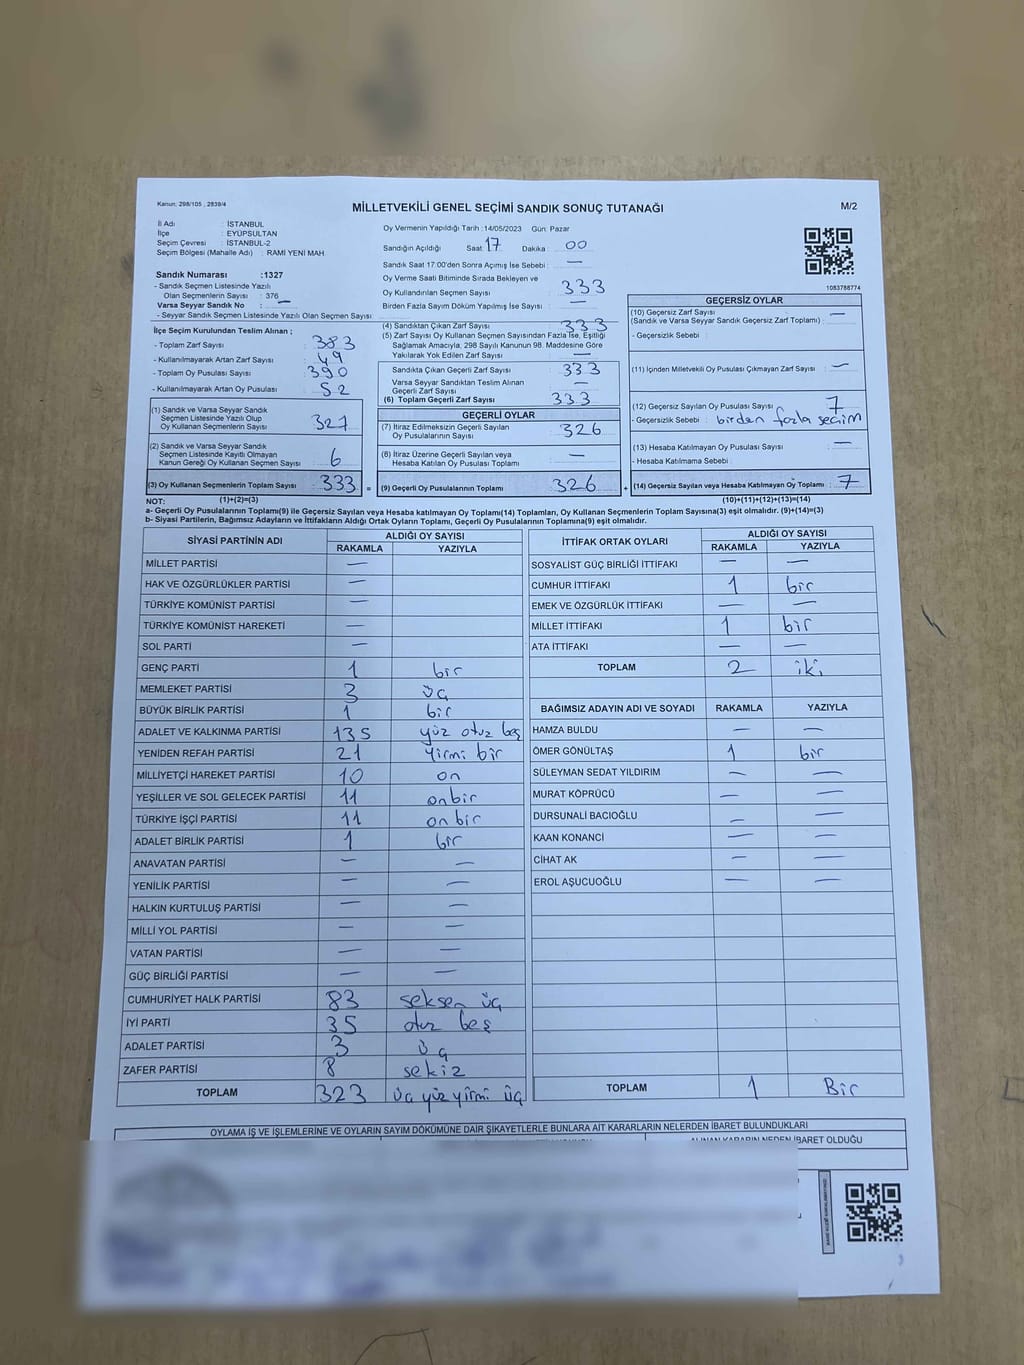 Kanun; 298/105 , 2839/4
MİLLETVEKİLİ GENEL SEÇİMİ SANDIK SONUÇ TUTANAĞI
M/2
İl Adı : İSTANBUL
İlçe : EYÜPSULTAN
Seçim Çevresi : İSTANBUL-2
Seçim Bölgesi (Mahalle Adı) : RAMİ YENİ MAH
Sandık Numarası :1327
- Sandık Seçmen Listesinde Yazılı
Olan Seçmenlerin Sayısı : 376
Varsa Seyyar Sandık No : —
- Seyyar Sandık Seçmen Listesinde Yazılı Olan Seçmen Sayısı:
İlçe Seçim Kurulundan Teslim Alınan ;
- Toplam Zarf Sayısı : 383
- Kullanılmayarak Artan Zarf Sayısı : 49
- Toplam Oy Pusulası Sayısı : 390
- Kullanılmayarak Artan Oy Pusulası : 52
(1) Sandık ve Varsa Seyyar Sandık
Seçmen Listesinde Yazılı Olup
Oy Kullanan Seçmenlerin Sayısı : 327
(2) Sandık ve Varsa Seyyar Sandık
Seçmen Listesinde Kayıtlı Olmayan
Kanun Gereği Oy Kullanan Seçmen Sayısı : 6
(3) Oy Kullanan Seçmenlerin Toplam Sayısı : 333
Oy Vermenin Yapıldığı Tarih :14/05/2023 Gün: Pazar
Sandığın Açıldığı Saat: 17 Dakika : 00
Sandık Saat 17:00'den Sonra Açılmış İse Sebebi : —
Oy Verme Saati Bitiminde Sırada Bekleyen ve
Oy Kullandırılan Seçmen Sayısı : 333
Birden Fazla Sayım Döküm Yapılmış İse Sayısı : —
(4) Sandıktan Çıkan Zarf Sayısı : 333
(5) Zarf Sayısı Oy Kullanan Seçmen Sayısından Fazla İse, Eşitliği
Sağlamak Amacıyla, 298 Sayılı Kanunun 98. Maddesine Göre
Yakılarak Yok Edilen Zarf Sayısı : —
Sandıkta Çıkan Geçerli Zarf Sayısı : 333
Varsa Seyyar Sandıktan Teslim Alınan
Geçerli Zarf Sayısı : —
(6) Toplam Geçerli Zarf Sayısı : 333
GEÇERLİ OYLAR
(7) İtiraz Edilmeksizin Geçerli Sayılan
Oy Pusulalarının Sayısı : 326
(8) İtiraz Üzerine Geçerli Sayılan veya
Hesaba Katılan Oy Pusulası Toplamı : —
= (9) Geçerli Oy Pusulalarının Toplamı : 326 +
1083788774
GEÇERSİZ OYLAR
(10) Geçersiz Zarf Sayısı
(Sandık ve Varsa Seyyar Sandık Geçersiz Zarf Toplamı) : —
- Geçersizlik Sebebi :
(11) İçinden Milletvekili Oy Pusulası Çıkmayan Zarf Sayısı : —
(12) Geçersiz Sayılan Oy Pusulası Sayısı : 7
- Geçersizlik Sebebi : birden fazla seçim
(13) Hesaba Katılmayan Oy Pusulası Sayısı : —
- Hesaba Katılmama Sebebi :
(14) Geçersiz Sayılan veya Hesaba Katılmayan Oy Toplamı : 7
NOT: (1)+(2)=(3) (10)+(11)+(12)+(13)=(14)
a- Geçerli Oy Pusulalarının Toplamı(9) ile Geçersiz Sayılan veya Hesaba Katılmayan Oy Toplamı(14) Toplamları, Oy Kullanan Seçmenlerin Toplam Sayısına(3) eşit olmalıdır. (9)+(14)=(3)
b- Siyasi Partilerin, Bağımsız Adayların ve İttifakların Aldığı Ortak Oyların Toplamı, Geçerli Oy Pusulalarının Toplamına(9) eşit olmalıdır.
SİYASİ PARTİNİN ADI ALDIĞI OY SAYISI
RAKAMLA YAZIYLA
MİLLET PARTİSİ —
HAK VE ÖZGÜRLÜKLER PARTİSİ —
TÜRKİYE KOMÜNİST PARTİSİ —
TÜRKİYE KOMÜNİST HAREKETİ —
SOL PARTİ —
GENÇ PARTİ 1 bir
MEMLEKET PARTİSİ 3 üç
BÜYÜK BİRLİK PARTİSİ 1 bir
ADALET VE KALKINMA PARTİSİ 135 yüz otuz beş
YENİDEN REFAH PARTİSİ 21 yirmi bir
MİLLİYETÇİ HAREKET PARTİSİ 10 on
YEŞİLLER VE SOL GELECEK PARTİSİ 11 onbir
TÜRKİYE İŞÇİ PARTİSİ 11 on bir
ADALET BİRLİK PARTİSİ 1 bir
ANAVATAN PARTİSİ — —
YENİLİK PARTİSİ — —
HALKIN KURTULUŞ PARTİSİ — —
MİLLİ YOL PARTİSİ — —
VATAN PARTİSİ — —
GÜÇ BİRLİĞİ PARTİSİ — —
CUMHURİYET HALK PARTİSİ 83 seksen üç
İYİ PARTİ 35 otuz beş
ADALET PARTİSİ 3 üç
ZAFER PARTİSİ 8 sekiz
TOPLAM 323 üç yüz yirmi üç
İTTİFAK ORTAK OYLARI ALDIĞI OY SAYISI
RAKAMLA YAZIYLA
SOSYALİST GÜÇ BİRLİĞİ İTTİFAKI — —
CUMHUR İTTİFAKI 1 bir
EMEK VE ÖZGÜRLÜK İTTİFAKI — —
MİLLET İTTİFAKI 1 bir
ATA İTTİFAKI — —
TOPLAM 2 iki
BAĞIMSIZ ADAYIN ADI VE SOYADI RAKAMLA YAZIYLA
HAMZA BULDU — —
ÖMER GÖNÜLTAŞ 1 bir
SÜLEYMAN SEDAT YILDIRIM — —
MURAT KÖPRÜCÜ — —
DURSUNALİ BACIOĞLU — —
KAAN KONANCİ — —
CİHAT AK — —
EROL AŞUCUOĞLU — —
TOPLAM 1 Bir
OYLAMA İŞ VE İŞLEMLERİNE VE OYLARIN SAYIM DÖKÜMÜNE DAİR ŞİKAYETLERLE BUNLARA AİT KARARLARIN NELERDEN İBARET BULUNDUKLARI
ALINAN KARARIN NEDEN İBARET OLDUĞU